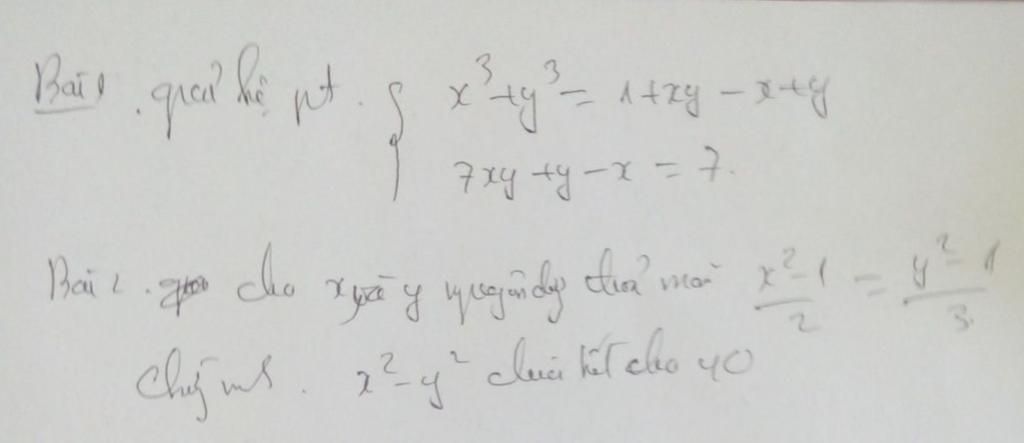 Bài 1. giải hệ pt. { x³+y³ = 1+xy - x+y
7xy +y - x = 7.
Bài 2. cho x và y nguyên dg thoả mãn x²-1/2 = y²-1/3
Chứg ms. x²-y² chia hết cho 40